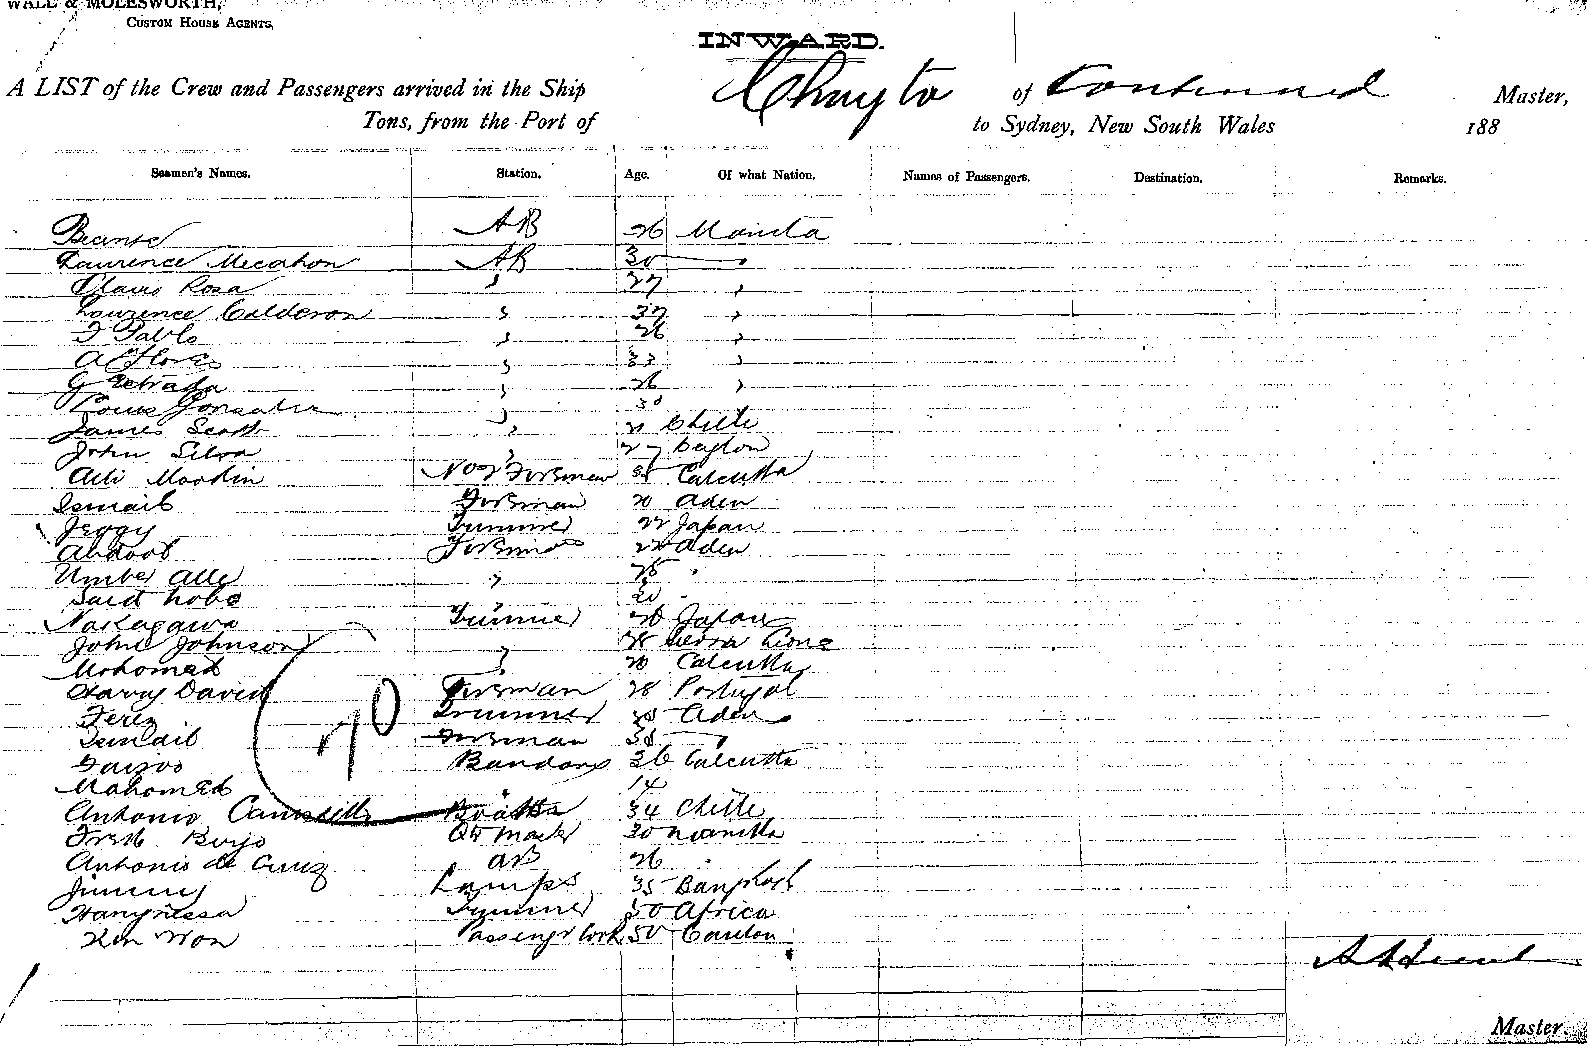 WALL & MOLESWORTH,
CUSTOM HOUSE AGENTS,
INWARD.
A LIST of the Crew and Passengers arrived in the Ship of Continued Master,
Tons, from the Port of to Sydney, New South Wales 188
Seamen's Names. Station. Age. Of what Nation. Names of Passengers. Destination. Remarks.
AB 26 Manila
Laurence Mecahon AB 30 "
Rosa " 27 "
Laurence Calderon " 37 "
F Pablo " 26 "
A Flores " 33 "
G Estrada " 26 "
Louis Gonsales " 30
James Scott " 21 Chille
John Silva " 27 Ceylon
Alli Moodin No 1 Fireman 35 Calcutta
Ismail Fireman 20 Aden
Jeggy Trimmer 22 Japan
Abdool Fireman 22 Aden
Umber Alle " 25 "
Said 20 "
Nakagawa Trimmer 26 Japan
John Johnson " 28 Sierra Leone
Mohomed " 20 Calcutta
Harry David Fireman 28 Portugal
Ferez Trimmer 30 Aden
Ismail Fireman 38 "
Bandary 36 Calcutta
Mahomed " 14
Antonio 34 Chille
30 Manilla
Antonio de Cruz AB 26 "
Jimmy Lamps 35 Bangkok
Trimmer 50 Africa
Kin Won Passengr Cook 50 Canton
Master.